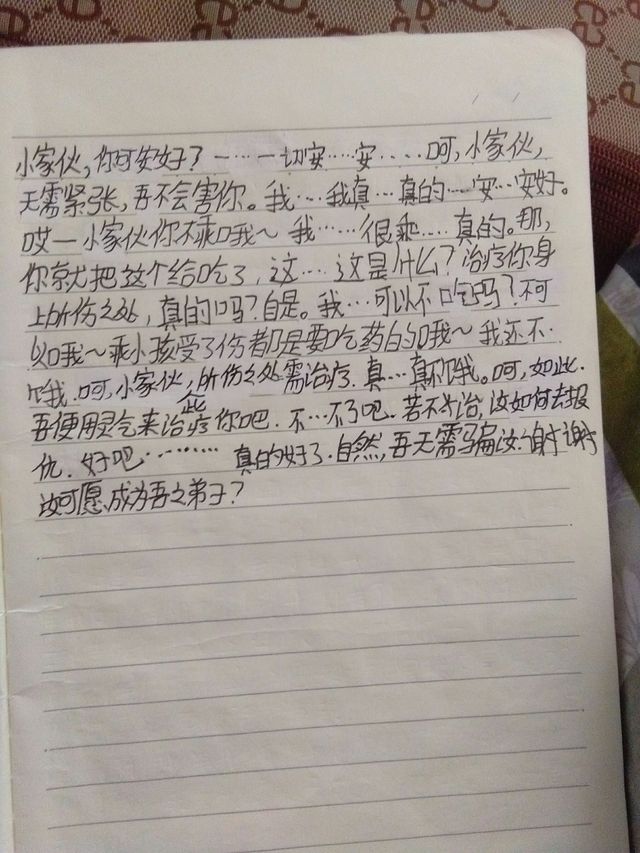 小家伙，你可安好？一……一切安……安……呵，小家伙，
无需紧张，吾不会害你。我……我真……真的……安……安好。
哎一小家伙你不乖哦～我……很乖……真的。那，
你就把这个给吃了，这……这是什么？治疗你身
上所伤之处，真的吗？自是。我……可以不吃吗？不可
以哦～乖小孩受了伤都是要吃药的哦～我还不
哦.呵，小家伙，此所伤之处需治疗.真……真不哦。呵，如此.
吾便用灵气来治疗你吧.不……不了吧.若不治，该如何去报
仇.好吧………真的好了.自然，吾无需骗汝.谢谢
汝可愿成为吾之弟子？